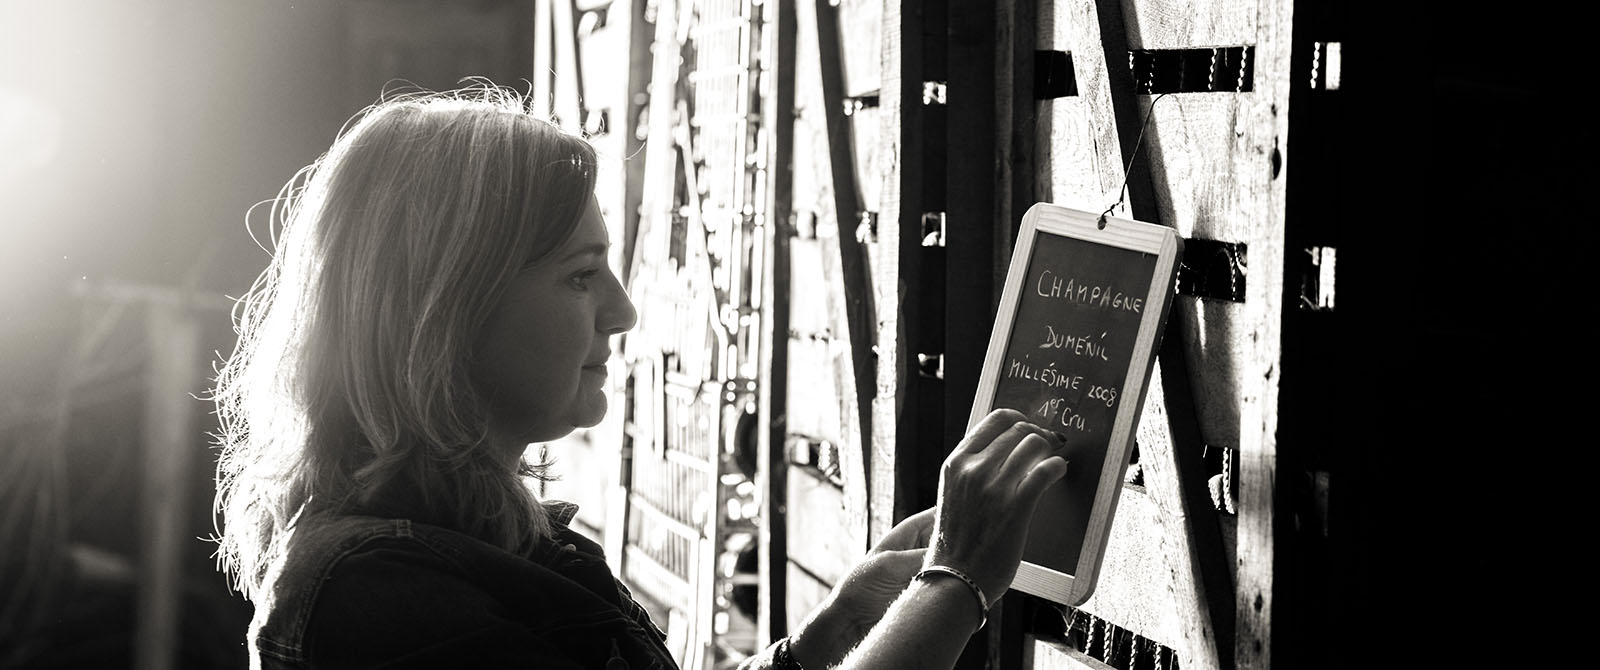 CHAMPAGNE
DUMÉNIL
MILLÉSIME 2008
1er Cru.